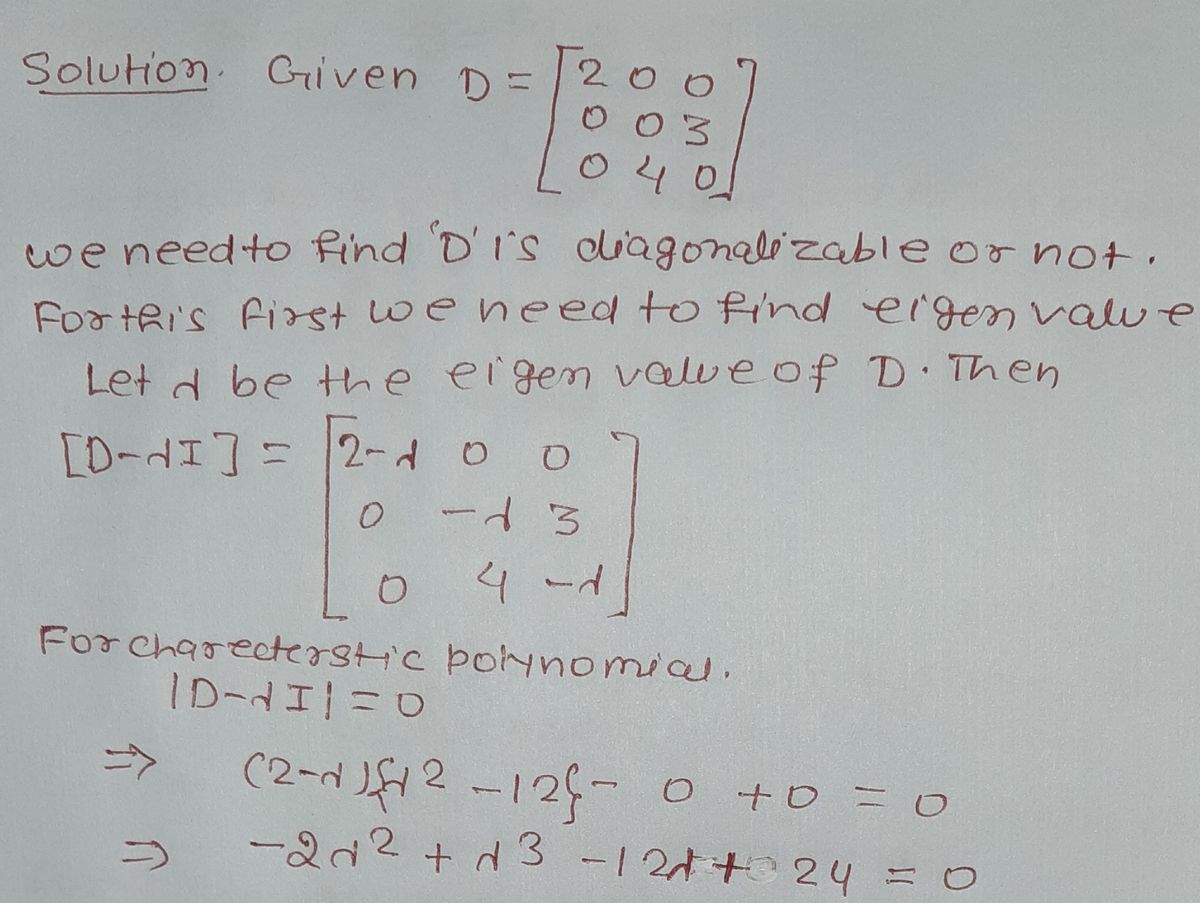 Solution. Given D = [2 0 0
0 0 3
0 4 0]
we need to find 'D' is diagonalizable or not.
For this first we need to find eigen value
Let λ be the eigen value of D. Then
[D-λI] = [2-λ 0 0
0 -λ 3
0 4 -λ]
For charecterstic polynomial.
|D-λI| = 0
⇒ (2-λ){λ² -12} - 0 + 0 = 0
⇒ -2λ² + λ³ -12λ + 24 = 0